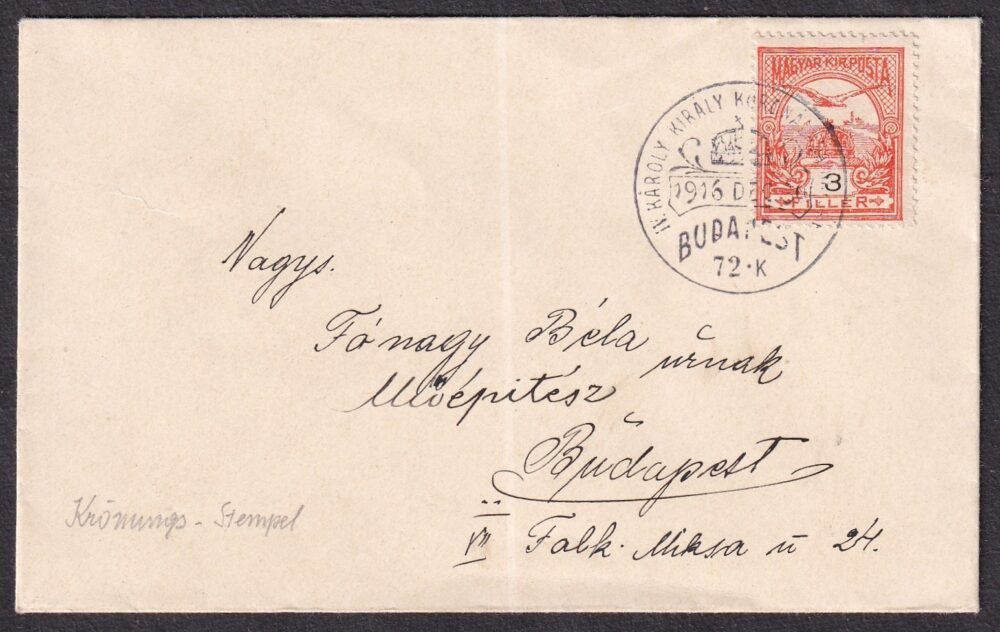 MAGYAR KIR. POSTA
3
FILLER
IV. KÁROLY KIRÁLY
1916 DEC
BUDAPEST
72·K
Nagys.
Fónagy Béla úrnak
Műépitész
Budapest
VII Falk Miksa u 24.
Krönungs-Stempel